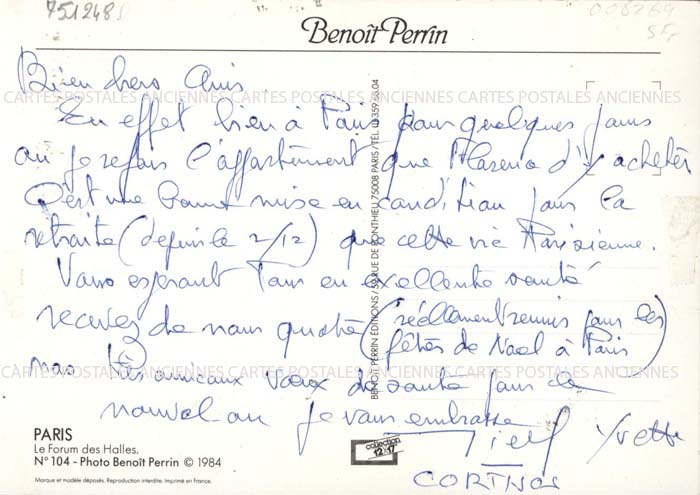 751248
008269
Benoît Perrin
Bien chers Amis
CARTES POSTALES ANCIENNES CARTES POSTALES ANCIENNES CARTES POSTALES ANCIENNES
En effet bien à Paris pour quelques jours
où je refais l'appartement que vient d'y acheter
C'est une bonne mise en condition pour la
retraite (depuis le 2/12) que cette vie Parisienne.
Vous espérant Tous en excellente santé
recevez de nous quatre (réellement réunis pour les
fêtes de Noel à Paris)
nos très amicaux voeux de santé pour le
CARTES POSTALES ANCIENNES CARTES POSTALES ANCIENNES CARTES POSTALES ANCIENNES
nouvel an Je vous embrasse
Yvette
BENOÎT PERRIN ÉDITIONS / 59 RUE DE PONTHIEU 75008 PARIS / TÉL. 04
PARIS
Le Forum des Halles.
N° 104 - Photo Benoît Perrin © 1984
Marque et modèle déposés. Reproduction interdite. Imprimé en France.
collection
12·17